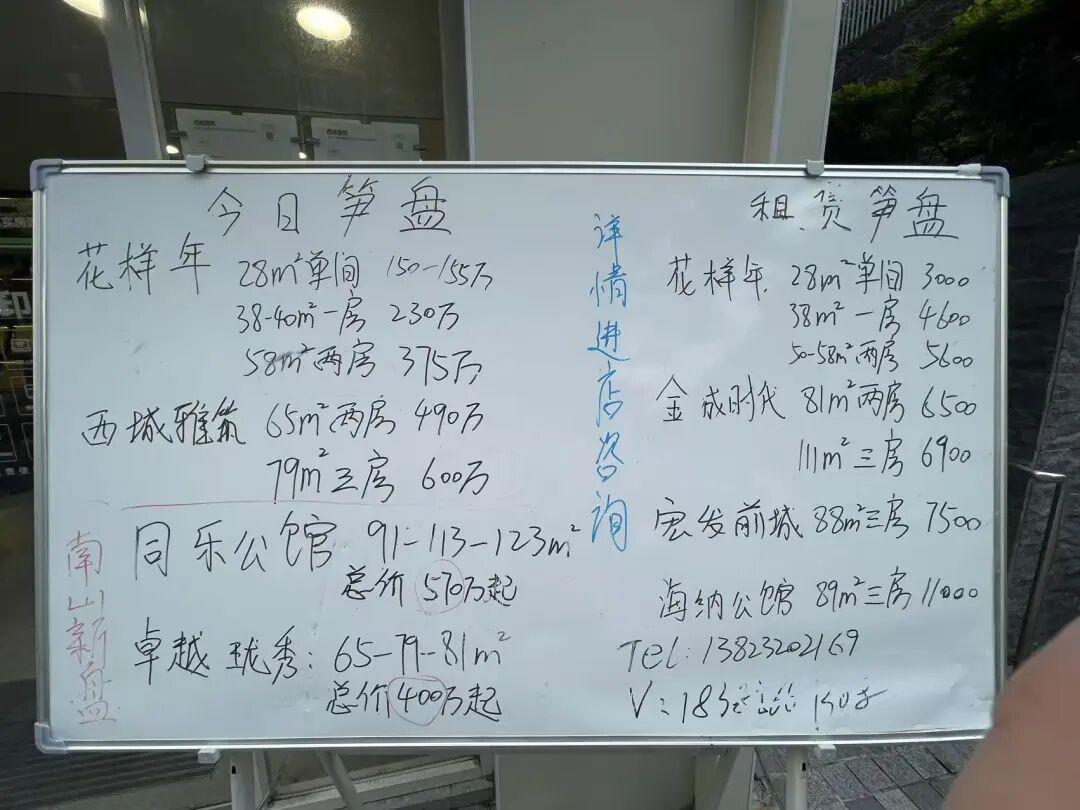 今日笋盘
花样年 28m²单间 150-155万
38-40m²一房 230万
58m²两房 375万
西城雅筑 65m²两房 490万
79m²三房 600万
南山新盘
同乐公馆 91-113-123m²
总价570万起
卓越珑秀：65-79-81m²
总价400万起
详情进店咨询
租赁笋盘
花样年 28m²单间 3000
38m²一房 4600
50-58m²两房 5600
金成时代 81m²两房 6500
111m²三房 6900
宏发前城 88m²三房 7500
海纳公馆 89m²三房 11000
Tel: 13823202169
V: